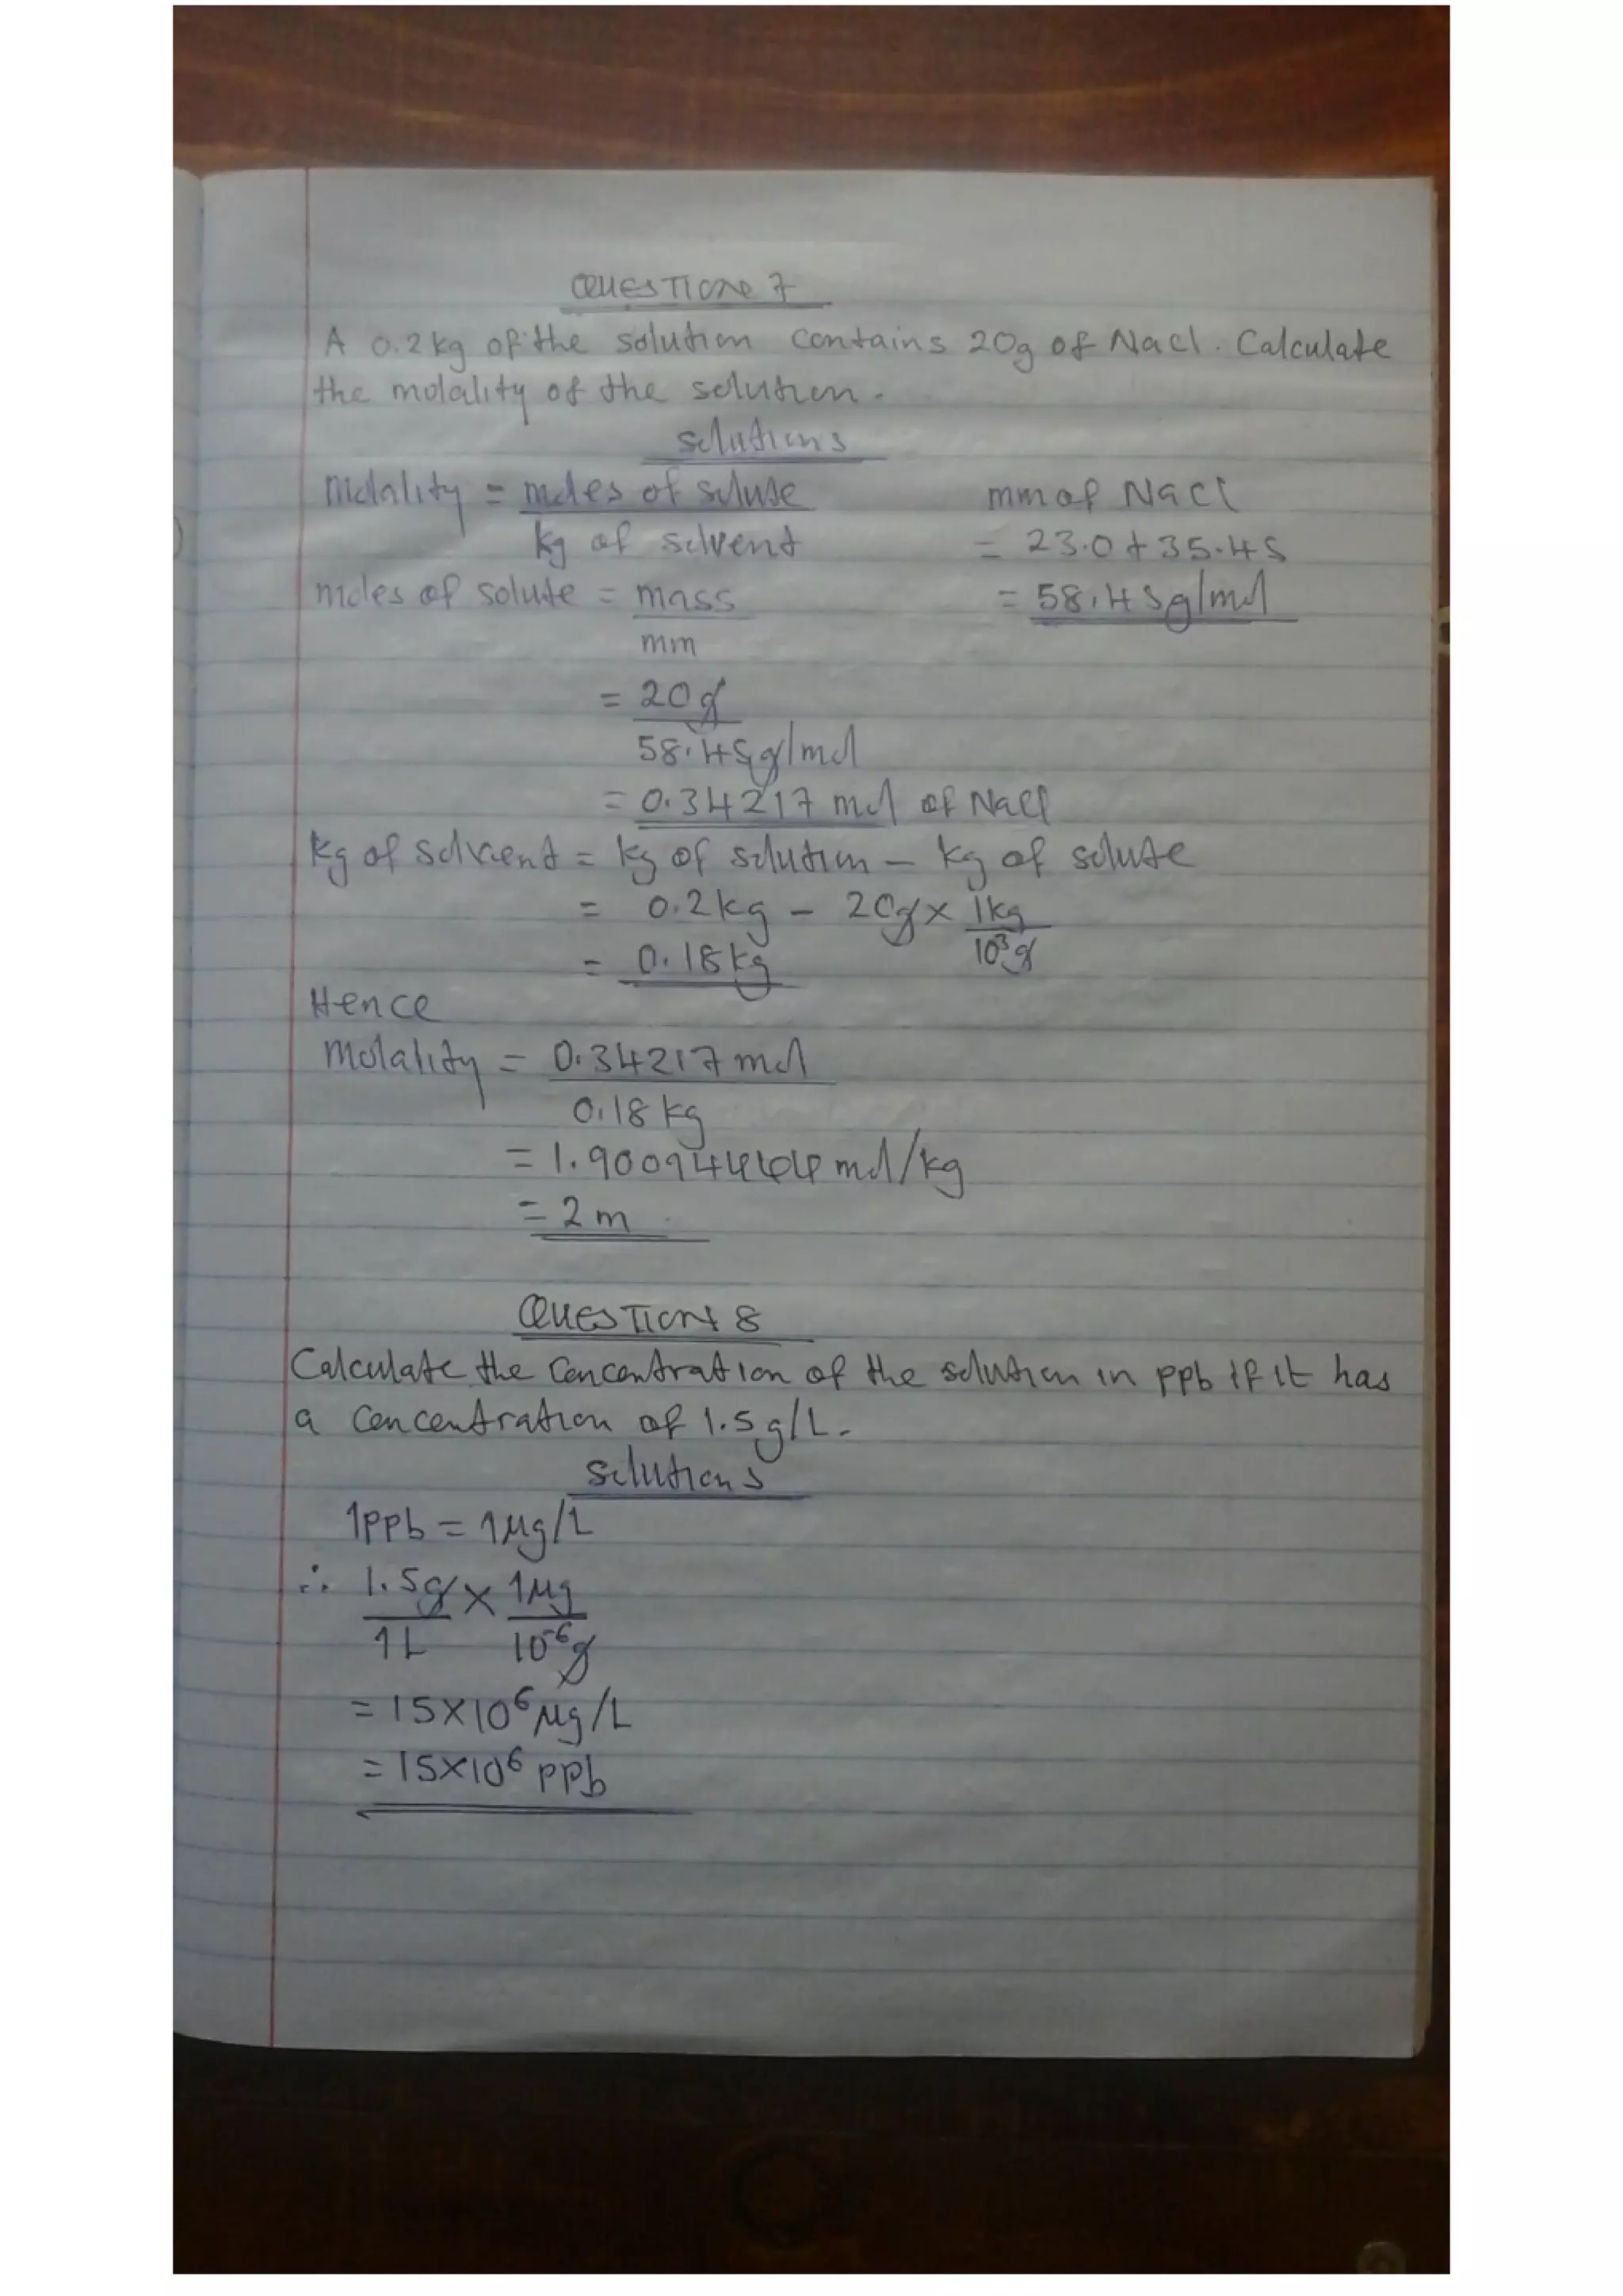 QUESTION 7
A 0.2kg of the solution contains 20g of Nacl. Calculate
the molality of the solution.
solutions
Molality = moles of solute mm of NaCl
kg of solvent = 23.0 + 35.45
moles of solute = mass = 58.45g/mol
mm
= 20g
58.45g/mol
= 0.34217 mol of NaCl
kg of solvent = kg of solution - kg of solute
= 0.2kg - 20g x 1kg
= 0.18kg 10³g
Hence
Molality = 0.34217 mol
0.18 kg
= 1.900944444 mol/kg
= 2m
QUESTION 8
Calculate the concentration of the solution in ppb if it has
a concentration of 1.5g/L.
solutions
1ppb = 1µg/L
∴ 1.5g x 1µg
1L 10⁻⁶g
= 15x10⁶ µg/L
= 15x10⁶ ppb